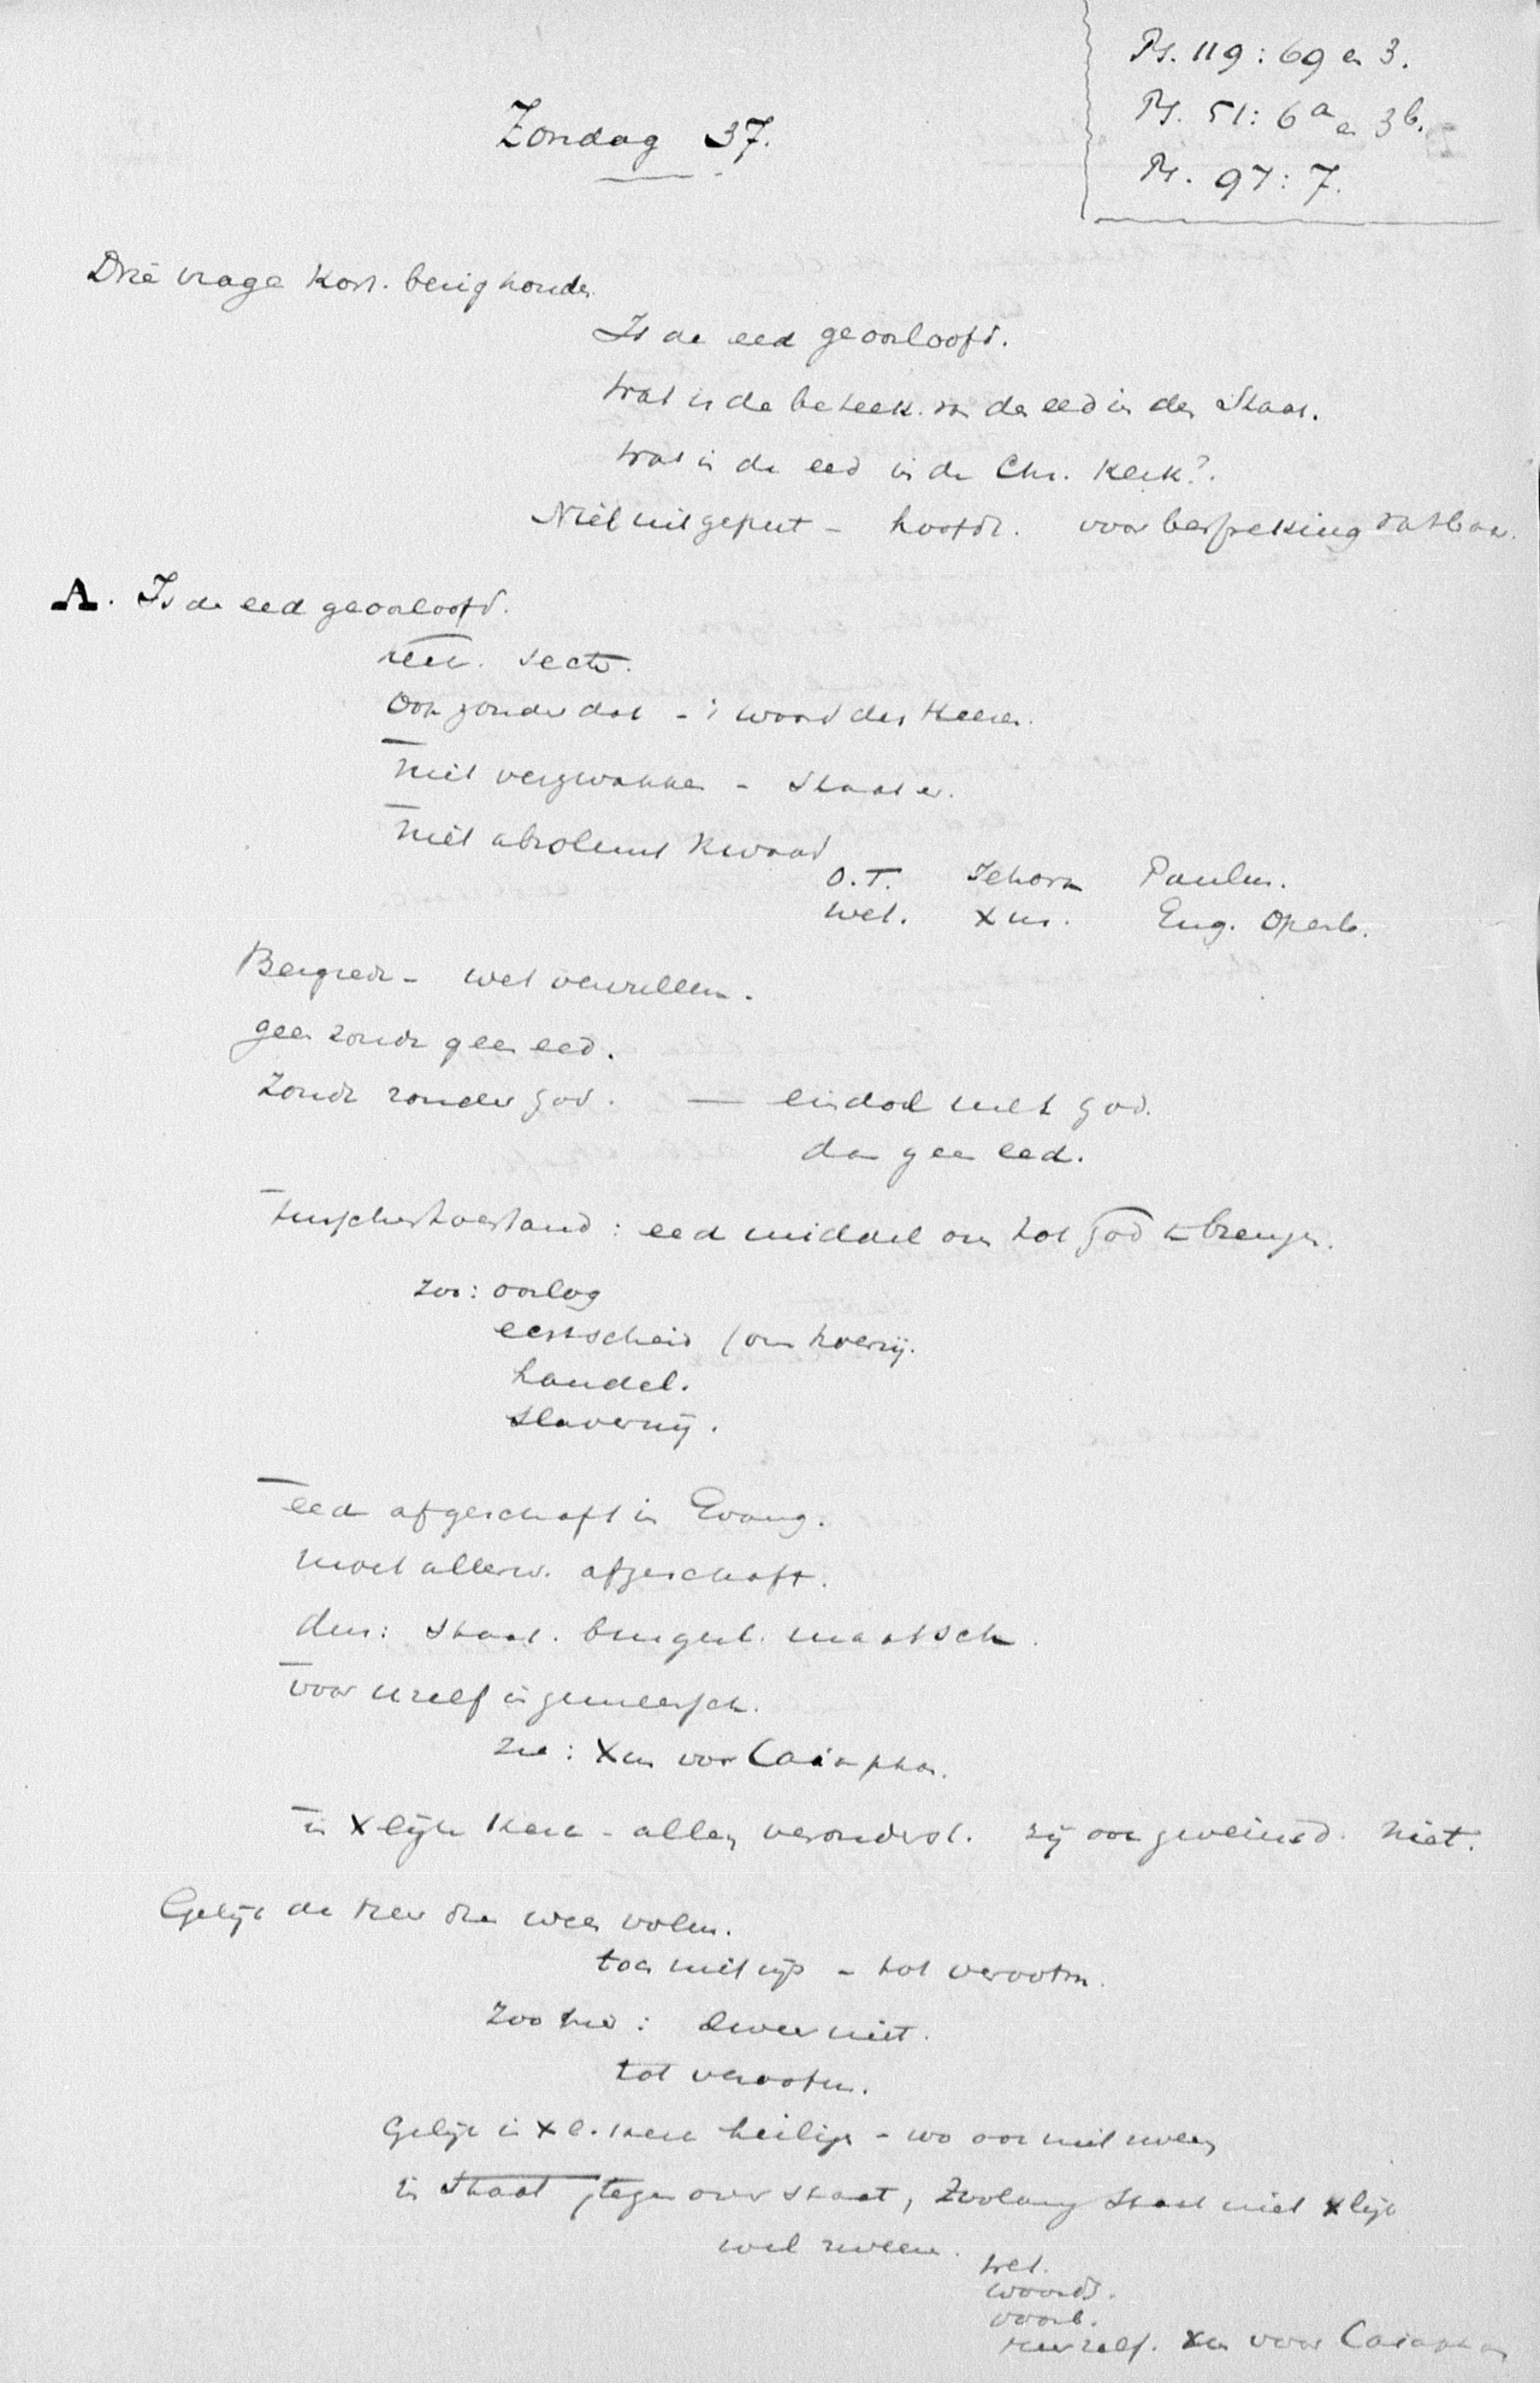 Ps. 119: 69 en 3.
Ps. 51: 6a en 3b.
Ps. 97: 7.
Zondag 37.
Drie vrage kort. bezig houden
Is de eed geoorloofd.
Wat is de beteek. van de eed in den Staat.
Wat is de eed in de Chr. Kerk?.
Niet uitgeput - hoofdz. voor bespreking vatbaar.
A. Is de eed geoorloofd.
neen. secte.
Ook zonder dat - 's woord des Heeren.
niet verzwakken - Staat
niet absoluut kwaad
O.T. Jehova Paulus.
wet. Xus. Eng. Openb.
Bergrede - wet vervullen.
geen zonde geen eed.
Zonde zonder God. — einddoel met God.
dan geen eed.
Tusschentoestand: eed middel om tot God te brengen.
zoo: oorlog
echtscheid (om hoerij.
handel.
slavernij.
eed afgeschaft in Evang.
moet allerw. afgeschaft.
dus: Staat. burgerl. maatsch.
voor uzelf in gemeensch.
zie: Xus voor Caiaphas.
in Xlijke Kerk - allen veronderst. zij ook geveinsd. niet.
Gelijk de Heer wees volm.
toch niet zijn - tot verootm.
Zoo hier: zweer niet.
tot verootm.
Gelijk in Xl. Kerk heilige - zoo ook niet zweren
in Staat, tegenover staat, Zoolang Staat niet Xlijk
wel zweren.
wet.
woord.
voorb.
Heer zelf. Xus voor Caiaphas